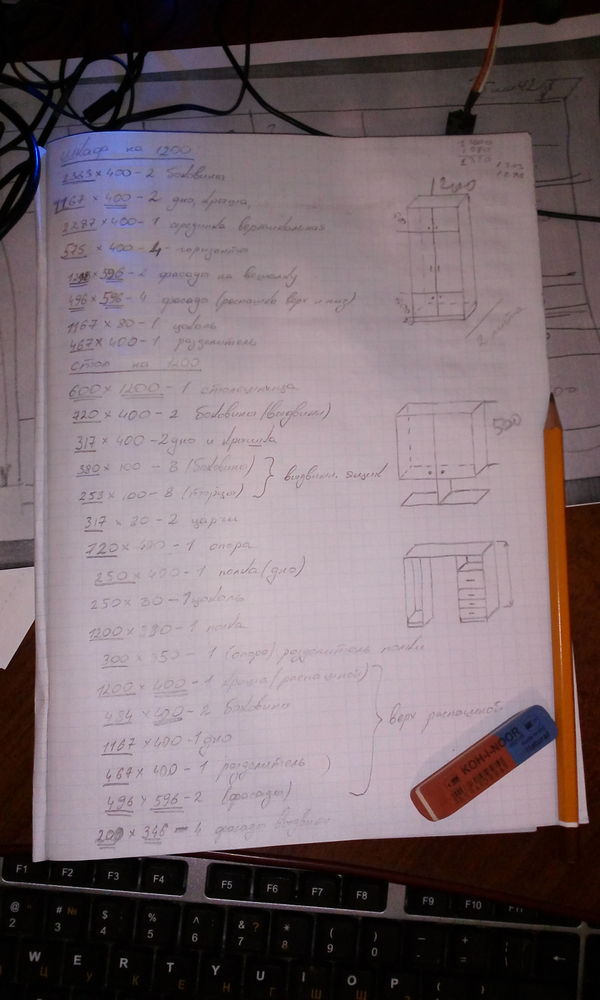 шкаф на 1200:
2363 × 400 – 2 боковина
1167 × 400 – 2 дно, крыша,
2287 × 400 – 1 средника вертикальная
575 × 400 – 4 – горизонты
× 596 – 2 фасады на вешалку
496 × 596 – 4 фасада (распашка верх и низ)
1167 × 80 – 1 цоколь
467 × 400 – 1 разделитель
стол на 1200
600 × 1200 – 1 столешница
720 × 400 – 2 боковина (выдвижн)
317 × 400 – 2 дно и крышка
380 × 100 – 8 (боковина)
253 × 100 – 8 (торцы)
выдвижн. ящик
317 × 80 – 2 царги
720 × 400 – 1 опора
250 × 400 – 1 полка (дно)
250 × 80 – 1 цоколь
1200 × 350 – 1 полка
300 × 350 – 1 (опора) разделитель полки
1200 × 400 – 1 крыша (распашной)
484 × 400 – 2 боковина
1167 × 400 – 1 дно
467 × 400 – 1 разделитель
496 × 596 – 2 (фасады)
верх распашной
200 × 346 – 4 фасады выдвижн
1200
500
KOH-I-NOOR
F1 F2 F3 F4 F5 F6 F7 F8 F9 F10 F11
@ 2 # № 3 $ ; 4 % 5 ^ : 6 & ? 7 * 8 ( 9 ) 0 _ - + =
W E R T Y U I O P
Ц У К Е Н Г Ш Щ З